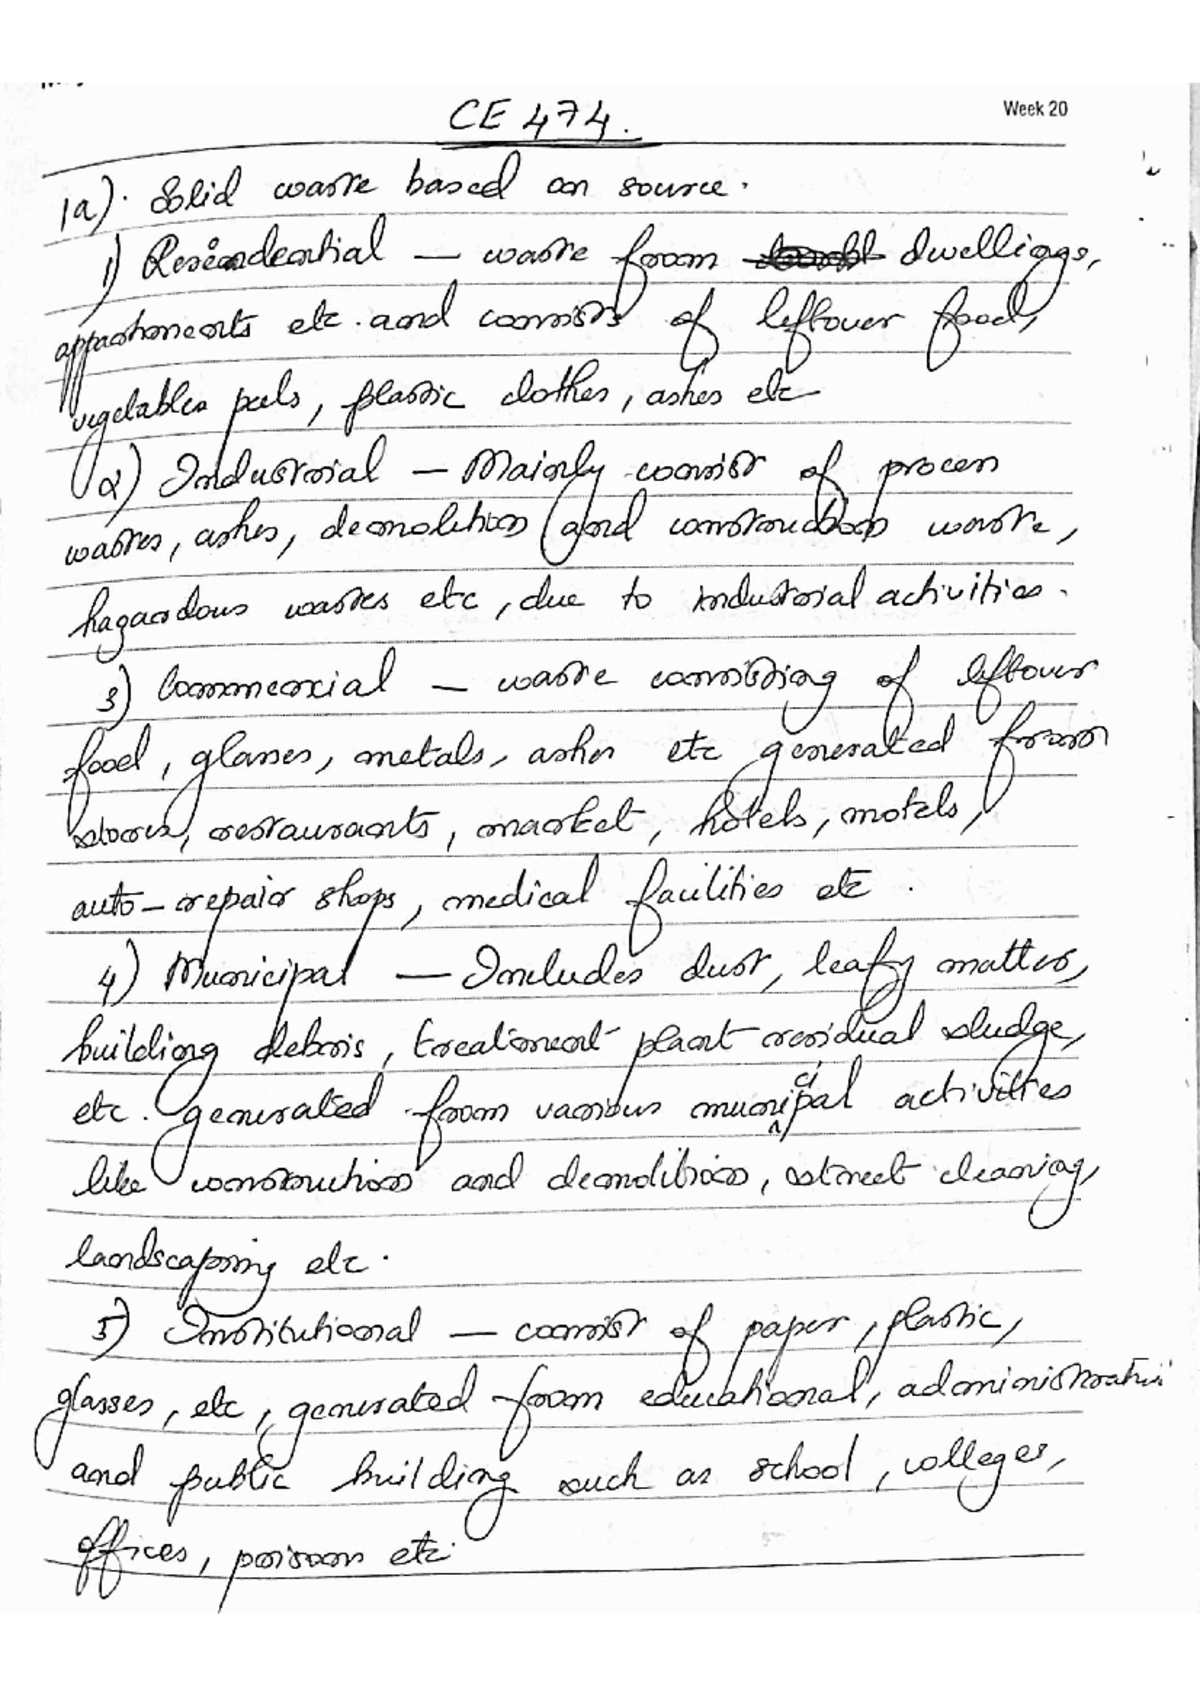 Week 20
CE 474.
1a). Solid waste based on source.
1) Residential — waste from dwellings,
appartments etc. and consists of leftover food,
vegetables peels, plastic clothes, ashes etc
2) Industrial — Mainly consist of process
wastes, ashes, demolition and construction waste,
hazardous wastes etc, due to industrial activities.
3) Commercial — waste consisting of leftover
food, glasses, metals, ashes etc generated from
stores, restaurants, market, hotels, motels,
auto-repair shops, medical facilities etc.
4) Municipal — Includes dust, leafy matter,
building debris, treatment plant residual sludge,
etc. generated from various municipal activities
like construction and demolition, street cleaning,
landscaping etc.
5) Institutional — consist of paper, plastic,
glasses, etc, generated from educational, administrative
and public building such as school, colleges,
offices, prison etc.